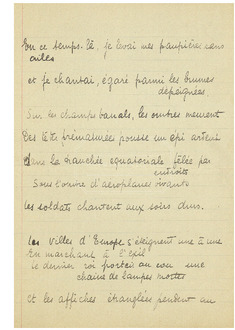 En ce temps-là, je levai mes paupières sans
ailes
et je chantai, égaré parmi les brumes
dépeignées
Sur les champs banals, les ombres meurent
Des prématurés pousse un épi
Dans la tranchée équatoriale fêlée par
endroits
Sous l'ombre d'aéroplanes vivants
Les soldats chantent aux soirs durs.
Les villes d'Europe s'éteignent une à une
En marchant à l'exil
Le dernier roi portait au cou une
chaîne de lampes mortes
Et les affiches étranglées pendent au